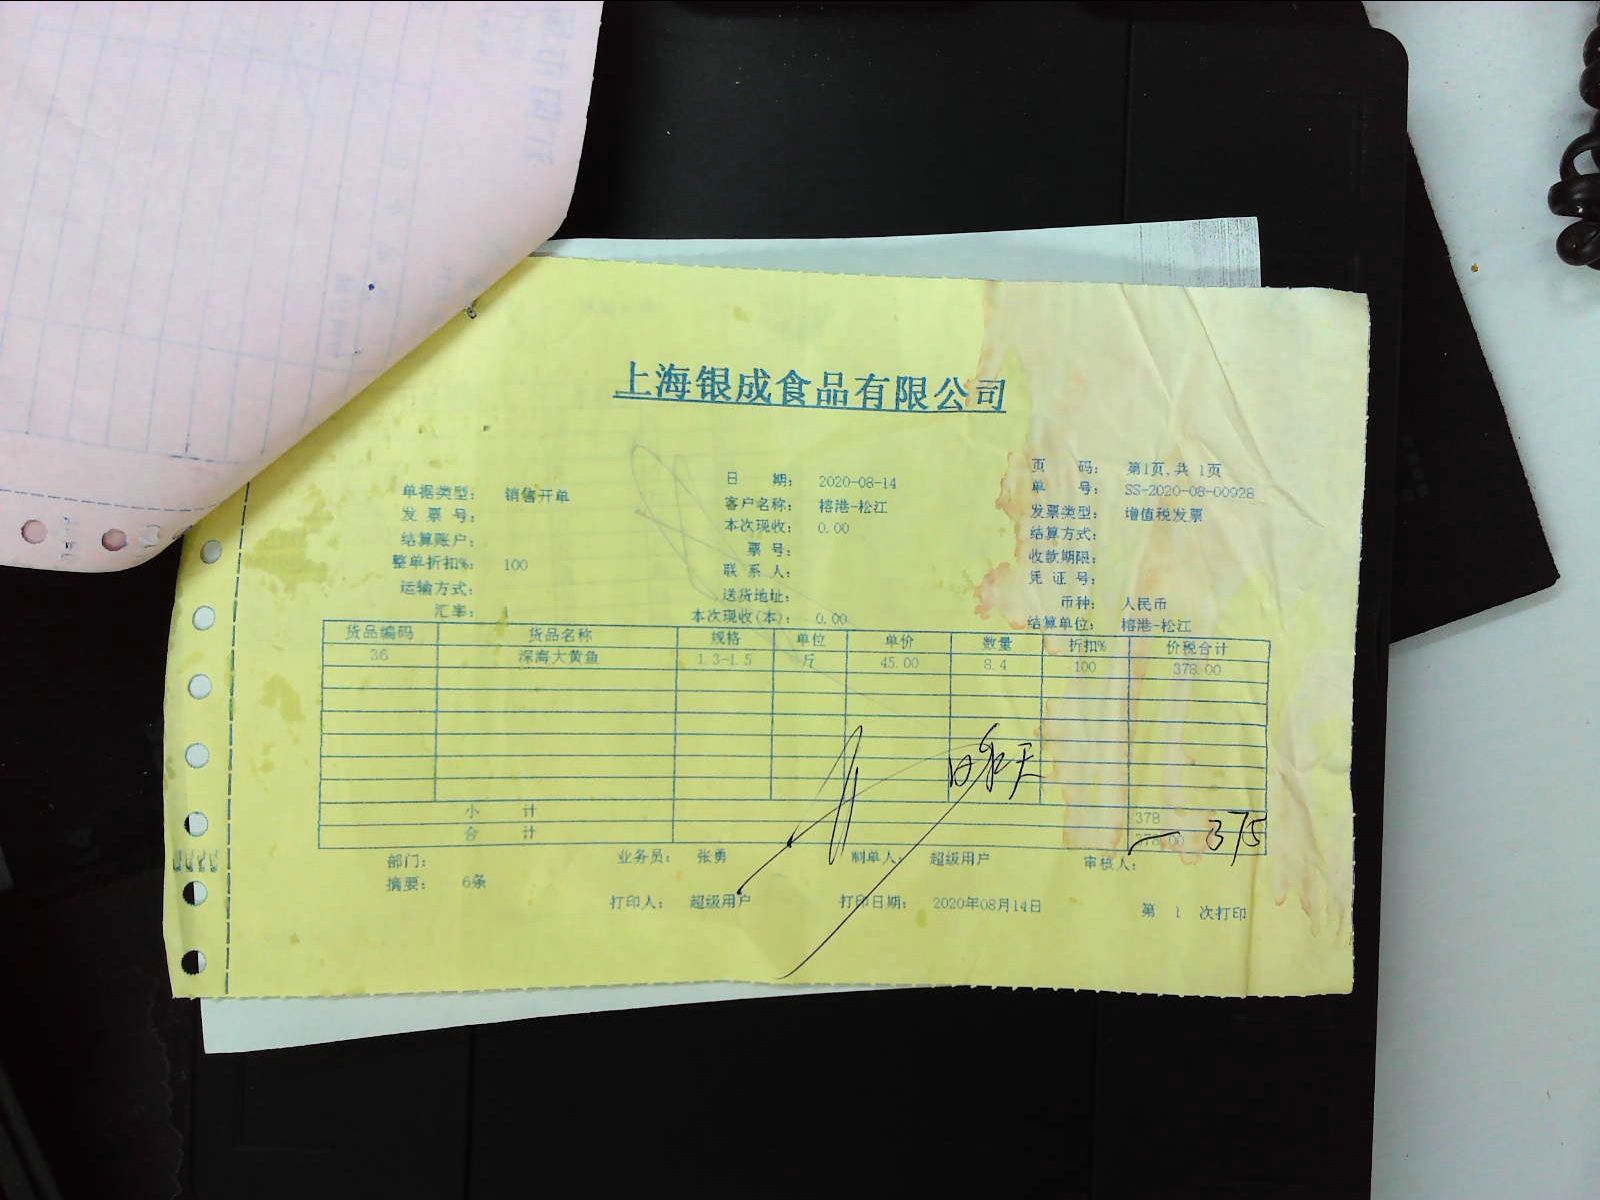 上海银成食品有限公司
页 码: 第1页,共 1页
日 期: 2020-08-14
单 号: SS-2020-08-00928
单据类型: 销售开单
客户名称: 榕港-松江
发票类型: 增值税发票
发 票 号:
本次现收: 0.00
结算方式:
结算账户:
票 号:
收款期限:
整单折扣%: 100
联 系 人:
凭 证 号:
运输方式:
送货地址:
币种: 人民币
汇率: 1
本次现收(本): 0.00
结算单位: 榕港-松江
货品编码 货品名称 规格 单位 单价 数量 折扣% 价税合计
36 深海大黄鱼 1.3-1.5 斤 45.00 8.4 100 378.00
小 计 378
合 计 378.00 375
部门: 业务员: 张勇 制单人: 超级用户 审核人:
摘要: 6条
打印人: 超级用户 打印日期: 2020年08月14日 第 1 次打印